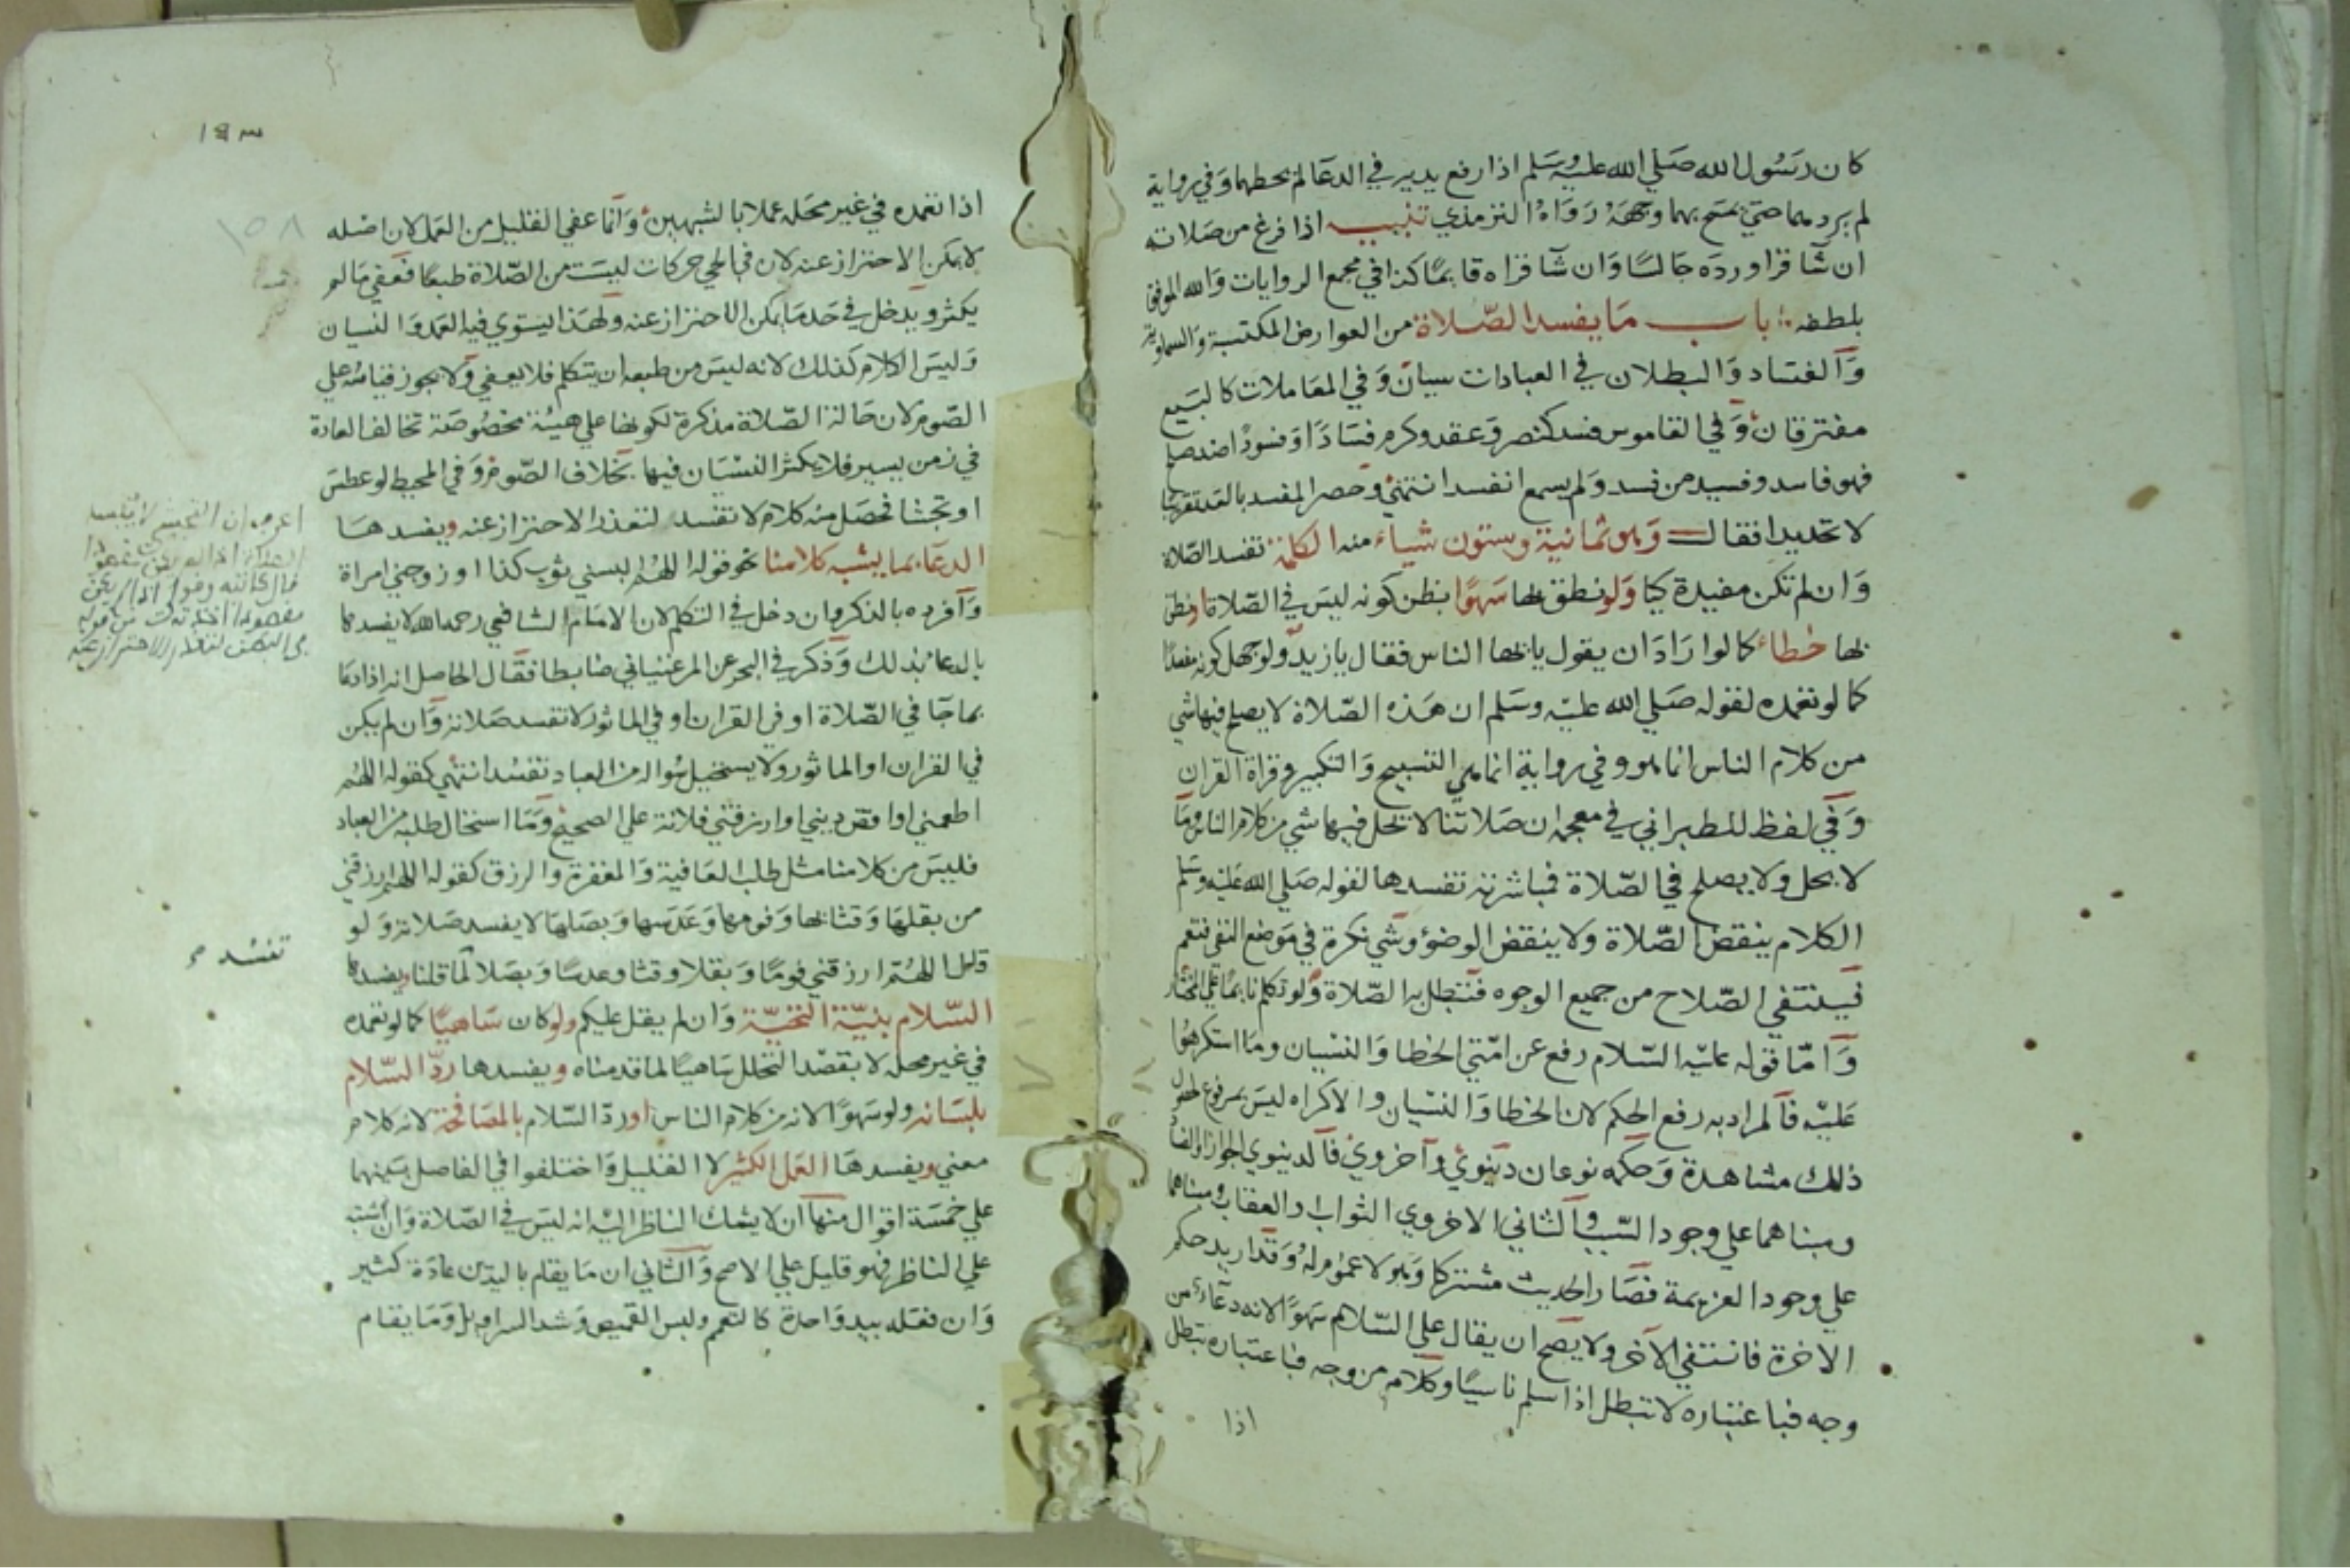 كان رسول الله صلي الله عليه وسلم اذا رفع يديه في الدعا لم يحطهما وفي رواية
لم يردهما حتي يمسح بهما وجهه رواه الترمذي تنبيه اذا فرغ من صلاته
ان شا قرا ورده جالسا وان شا قراه قايما كذا في مجمع الروايات والله الموفق
بلطفه باب ما يفسد الصلاة من العوارض المكتسبة والسماوية
والفساد والبطلان في العبادات سيان وفي المعاملات كالبيع
مفترقان وفي القاموس فسد كنصر وعقد وكرم فسادا وفسودا ضد صلح
فهو فاسد وفسيد من فسد ولم يسمع انفسد انتهي وحصر المفسد بالعد تقريبا
لا تحديدا فقال وهو ثمانية وستون شياء منه الكلمة تفسد الصلاة
وان لم تكن مفيدة كيا ولو نطق بها سهوا بظن كونه ليس في الصلاة او نطق
بها خطاء كما لو اراد ان يقول يا بها الناس فقال يا زيد ولو جهل كونه مفسدا
كما لو تعمده لقوله صلي الله عليه وسلم ان هذه الصلاة لا يصلح فيها شي
من كلام الناس انما هو وفي رواية انما هي التسبيح والتكبير وقراة القران
وفي لفظ للطبراني في معجمه ان صلاتنا لا يحل فيها شي من كلام الناس وما
لا يحل ولا يصلح في الصلاة فمباشرته تفسدها لقوله صلي الله عليه وسلم
الكلام ينقض الصلاة ولا ينقض الوضؤ وشي نكرة في موضع النفي فتعم
فينتفي الصلاح من جميع الوجوه فتبطل به الصلاة ولو تكلم نايما علي المختار
واما قوله عليه السلام رفع عن امتي الخطا والنسيان وما استكرهوا
عليه فالمراد به رفع الحكم لان الخطا والنسيان والاكراه ليس بمرفوع لحصول
ذلك مشاهدة وحكمه نوعان دنيوي واخروي فالدنيوي الجواز والفساد
ومبناهما علي وجود السبب والثاني الاخروي الثواب والعقاب ومبناهما
علي وجود العزيمة فصار الحديث مشتركا وهو لا عموم له وقد اريد حكم
الاخرة فانتفي الاخر ولا يصح ان يقال علي السلام سهوا لانه دعاء من
وجه فباعتباره لا تبطل اذا سلم ناسيا وكلام من وجه فباعتباره تبطل
اذا
١٥٣
١٥٨
اذا تعمده في غير محله عملا بالشبهين وانما عفي القليل من العمل لان اصله
لا يمكن الاحتراز عنه لان في الحي حركات ليست من الصلاة طبعا فعفي ما لم
يكثر ويدخل في حد ما يمكن الاحتراز عنه ولهذا يستوي فيه العمد والنسيان
وليس الكلام كذلك لانه ليس من طبعه ان يتكلم فلا يعفي ولا يجوز قياسه علي
الصوم لان حالة الصلاة مذكرة لكونها علي هيئة مخصوصة تخالف العادة
في زمن يسير فلا يكثر النسيان فيها بخلاف الصوم وفي المحيط لو عطس
او تجشا فحصل منه كلام لا تفسد لتعذر الاحتراز عنه ويفسدها
الدعاء بما يشبه كلامنا نحو قوله اللهم لبسني ثوب كذا او زوجني امراة
وافرده بالذكر وان دخل في التكلم لان الامام الشافعي رحمه الله لا يفسدها
بالدعاء بذلك وذكر في البحر عن المرغيناني ضابطا فقال الحاصل انه اذا دعا
بما جا في الصلاة او في القران او في الماثور لا تفسد صلاته وان لم يكن
في القران او الماثور ولا يستحيل سواله من العباد تفسد انتهي كقوله اللهم
اطعمني او اقض ديني او ارزقني فلانة علي الصحيح وما استحال طلبه من العباد
فليس من كلامنا مثل طلب العافية والمغفرة والرزق كقوله اللهم ارزقني
من بقلها وقثائها وفومها وعدسها وبصلها لا يفسد صلاته ولو
قال اللهم ارزقني فوما وبقلا وقثا وعدسا وبصلا لما قلنا ويفسدها
تفسد
السلام بنية التحية وان لم يقل عليكم ولو كان ساهيا كما لو تعمده
في غير محله لا بقصد التحلل ساهيا لما قدمناه ويفسدها رد السلام
بلسانه ولو سهوا لانه من كلام الناس او رد السلام بالمصافحة لانه كلام
معني ويفسدها العمل الكثير لا القليل واختلفوا في الفاصل بينهما
علي خمسة اقوال منها ان لا يشك الناظر اليه انه ليس في الصلاة وان اشتبه
علي الناظر فهو قليل علي الاصح والثاني ان ما يقام باليدين عادة كثير
وان فعله بيد واحدة كالتعمم ولبس القميص وشد السراويل وما يقام